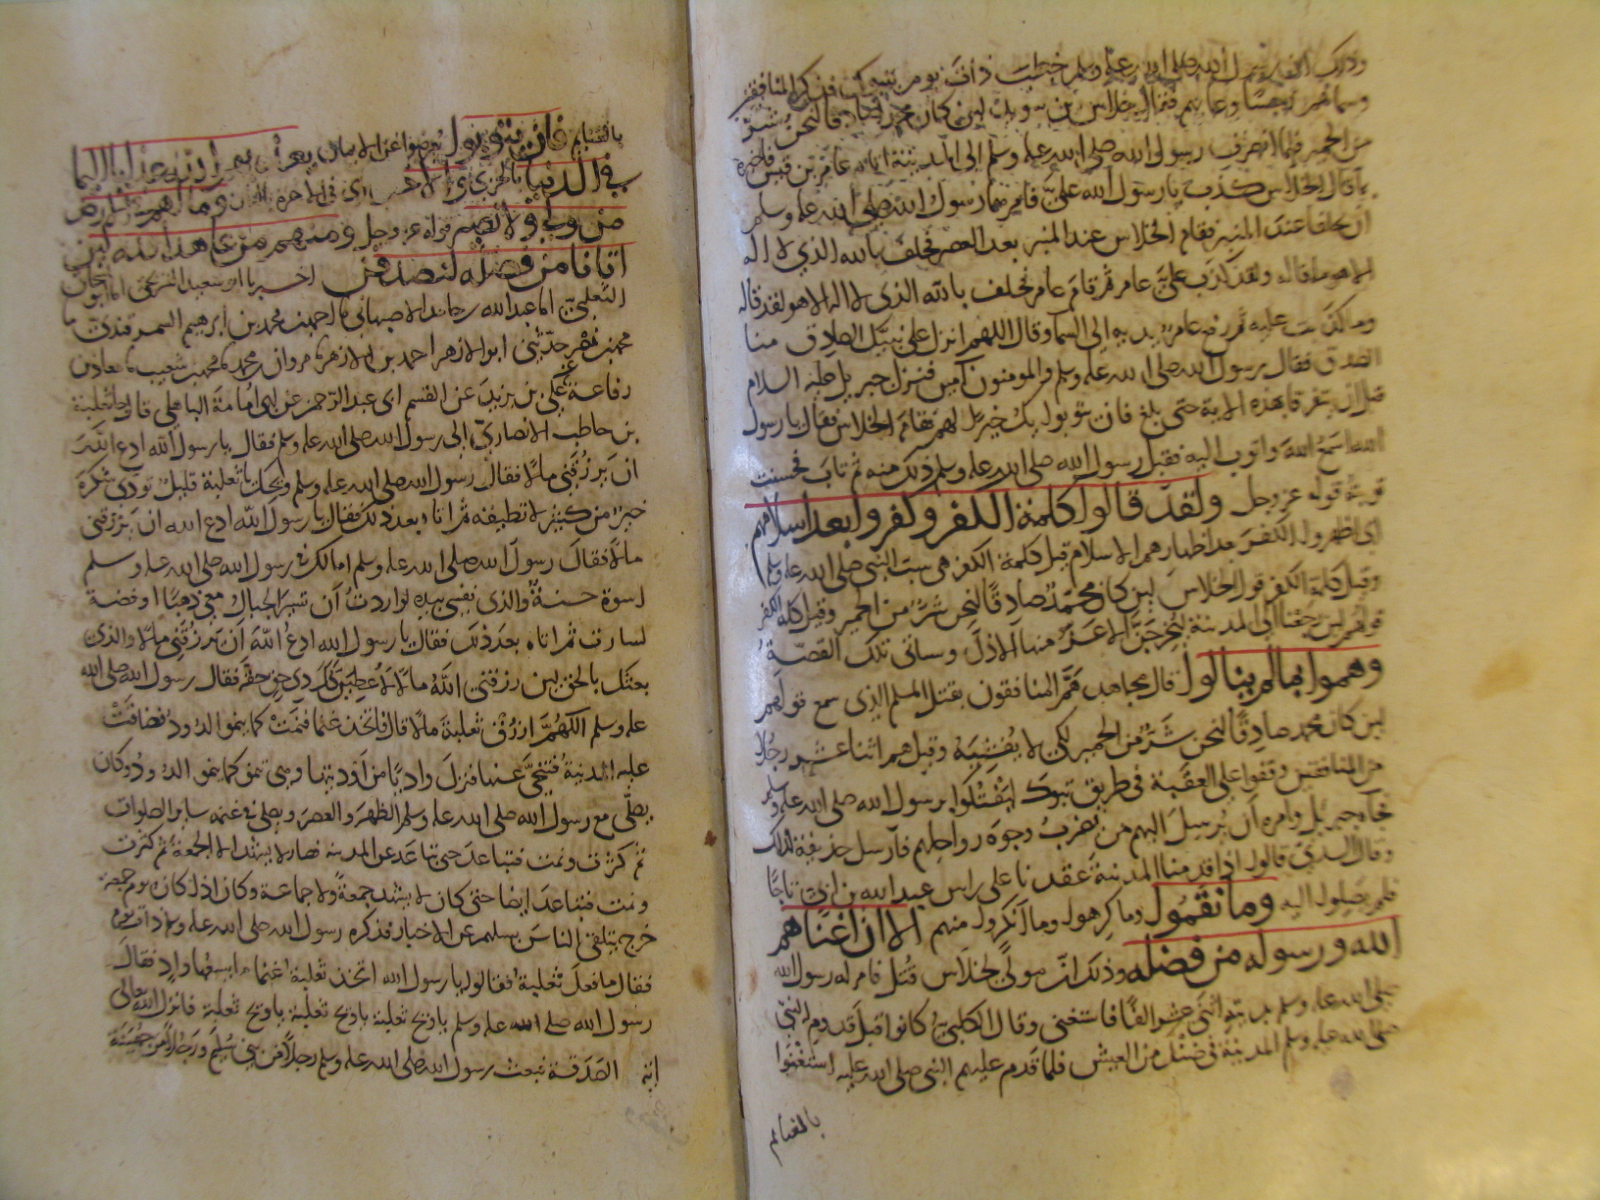 وذلك أن رسول الله صلى الله عليه وسلم خطب ذات يوم بتبوك فذكر المنافقين
وسماهم رجسا وعابهم فقال جلاس بن سويد لين كان محمد صادقا لنحن شر
من الحمير فلما انصرف رسول الله صلى الله عليه وسلم إلى المدينة اتاه عامر بن قيس فاخبره
بما قال الجلاس فقال الجلاس كذب يا رسول الله علي فامرهما رسول الله صلى الله عليه وسلم
ان يحلفا عند المنبر فقام الجلاس عند المنبر بعد العصر فحلف بالله الذي لا اله
الا هو ما قاله ولقد كذب علي عامر ثم قام عامر فحلف بالله الذي لا اله الا هو لقد قاله
وما كذبت عليه ثم رفع عامر يديه إلى السما وقال اللهم انزل على نبيك الصادق منا
الصدق فقال رسول الله صلى الله عليه وسلم والمومنون امين فنزل جبريل عليه السلام
قبل ان يتفرقا بهذه الاية حتى بلغ فان يتوبوا يك خيرا لهم فقام الجلاس فقال يا رسول
الله اسمع الله واتوب اليه فقبل رسول الله صلى الله عليه وسلم ذلك منه ثم تاب فحسنت
توبته قوله عز وجل ولقد قالوا كلمة الكفر وكفروا بعد اسلامهم
اي اظهروا الكفر بعد اظهارهم الاسلام قيل كلمة الكفر هي سب النبي صلى الله عليه وسلم
وقيل كلمة الكفر قول الجلاس لين كان محمد صادقا لنحن شر من الحمير وقيل كلمة الكفر
قولهم لين رجعنا الى المدينة ليخرجن الاعز منها الاذل وسياتي تلك القصة
وهموا بما لم ينالوا قال مجاهد هم المنافقون بقتل المسلم الذي سمع قولهم
لين كان محمد صادقا لنحن شر من الحمير لكي لا يفشيه وقيل هم اثنا عشر رجلا
من المنافقين وقفوا على العقبة في طريق تبوك ليفتكوا برسول الله صلى الله عليه وسلم
فجاه جبريل وامره ان يرسل اليهم من يضرب وجوه رواحلهم فارسل حذيفة لذلك
وقال السدي قالوا اذا قدمنا المدينة عقدنا على راس عبد الله بن ابي تاجا
فلم يصلوا اليه وما نقموا وما كرهوا وما انكروا منهم الا ان اغناهم
الله ورسوله من فضله وذلك ان مولى لجلاس قتل فامر له رسول الله
صلى الله عليه وسلم بديته اثني عشر الفا فاستغنى وقال الكلبي كانوا قبل قدوم النبي
صلى الله عليه وسلم المدينة في ضنك من العيش فلما قدم عليهم النبي صلى الله عليه استغنوا
بالغنايم
بالغنايم فان يتولوا يعرضوا عن الايمان يعذبهم الله عذابا اليما
في الدنيا بالخزي والاخرة اي في الاخرة وما لهم في الارض
من ولي ولا نصير قوله عز وجل ومنهم من عاهد الله لين
اتانا من فضله لنصدقن اخبرنا ابو سعيد الشريحي انا ابو اسحاق
الثعلبي انا عبد الله بن حامد الاصبهاني انا احمد بن محمد بن ابرهيم السمرقندي
محمد بن نصر حدثني ابو الازهر احمد بن الازهر مروان بن محمد محمد بن شعيب معاذ بن
رفاعة عن علي بن يزيد عن القسم ابي عبد الرحمن عن ابي امامة الباهلي قال جا ثعلبة
بن حاطب الانصاري إلى رسول الله صلى الله عليه وسلم فقال يا رسول الله ادع الله
ان يرزقني مالا فقال رسول الله صلى الله عليه وسلم ويحك يا ثعلبة قليل تودي شكره
خير من كثير لا تطيقه ثم اتاه بعد ذلك فقال يا رسول الله ادع الله ان يرزقني
مالا فقال رسول الله صلى الله عليه وسلم اما لك في رسول الله صلى الله عليه وسلم
اسوة حسنة والذي نفسي بيده لو اردت ان تسير الجبال معي ذهبا او فضة
لسارت ثم اتاه بعد ذلك فقال يا رسول الله ادع الله ان يرزقني مالا والذي
بعثك بالحق لين رزقني الله مالا لاعطين كل ذي حق حقه فقال رسول الله صلى الله
عليه وسلم اللهم ارزق ثعلبة مالا قال فاتخذ غنما فنمت كما ينمو الدود فضاقت
عليه المدينة فتنحى عنها فنزل واديا من اوديتها وهي تنمو كما ينمو الدود وكان
يصلي مع رسول الله صلى الله عليه وسلم الظهر والعصر ويصلي في غنمه ساير الصلوات
ثم كثرت ونمت فتباعد حتى تباعد عن المدينة فصار لا يشهد الا الجمعة ثم كثرت
ونمت فتباعد ايضا حتى كان لا يشهد جمعة ولا جماعة وكان اذا كان يوم جمعة
خرج يتلقى الناس يسلهم عن الاخبار فذكره رسول الله صلى الله عليه وسلم ذات يوم
فقال ما فعل ثعلبة فقالوا يا رسول الله اتخذ ثعلبة غنما ما يسعها واد فقال
رسول الله صلى الله عليه وسلم يا ويح ثعلبة يا ويح ثعلبة يا ويح ثعلبة فانزل الله تعالى
اية الصدقة فبعث رسول الله صلى الله عليه وسلم رجلا من بني سليم ورجلا من جهينة